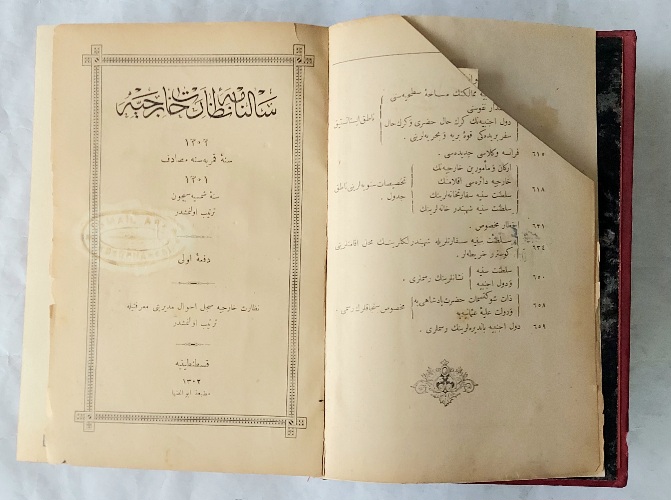 سالنامه نظارت خارجیه
١٣٠٢
سنهٔ قمریه سنه مصادف
١٣٠١
سنهٔ شمسیه سیچون
ترتیب اولنمشدر
دفعهٔ اولی
نظارت خارجیه سجل احوال مدیریتی معرفتیله
ترتیب اولنمشدر
قسطنطینیه
١٣٠٢
مطبعهٔ ابوالضیا
ممالکنك مساحهٔ سطحیه‌سی
دول اجنبیه‌نك كرك حال حضری و كرك حال
سفریده‌كی قوهٔ بریه و بحریه لرینی
ناطق ایستاتستیق
٦١٥ فرانسه وكلاسی جدیده‌سی .
اركان و مأمورین خارجیه‌نك
خارجیه دائره‌سی اقلامنك
سلطنت سنیه سفارتخانه‌لرینك
سلطنت سنیه شهبندر خانه لرینك
٦١٨ تخصیصات سنویه لرینی ناطق
جدول .
٦٢١ مخصوص .
٦٣٤ سلطنت سنیه سفارتلریله شهبندرلكلرینك محل اقامتلرینی
كوستریر خریطه‌لر .
٦٥٠ سلطنت سنیه
و دول اجنبیه
نشانلرینك رسملری .
٦٥٨ ذات شوكتسمات حضرت پادشاهی‌یه
و دولت علیهٔ عثمانیه‌یه
مخصوص سنجاقلرك رسمی .
٦٥٩ دول اجنبیه باندیره‌لرینك رسملری .